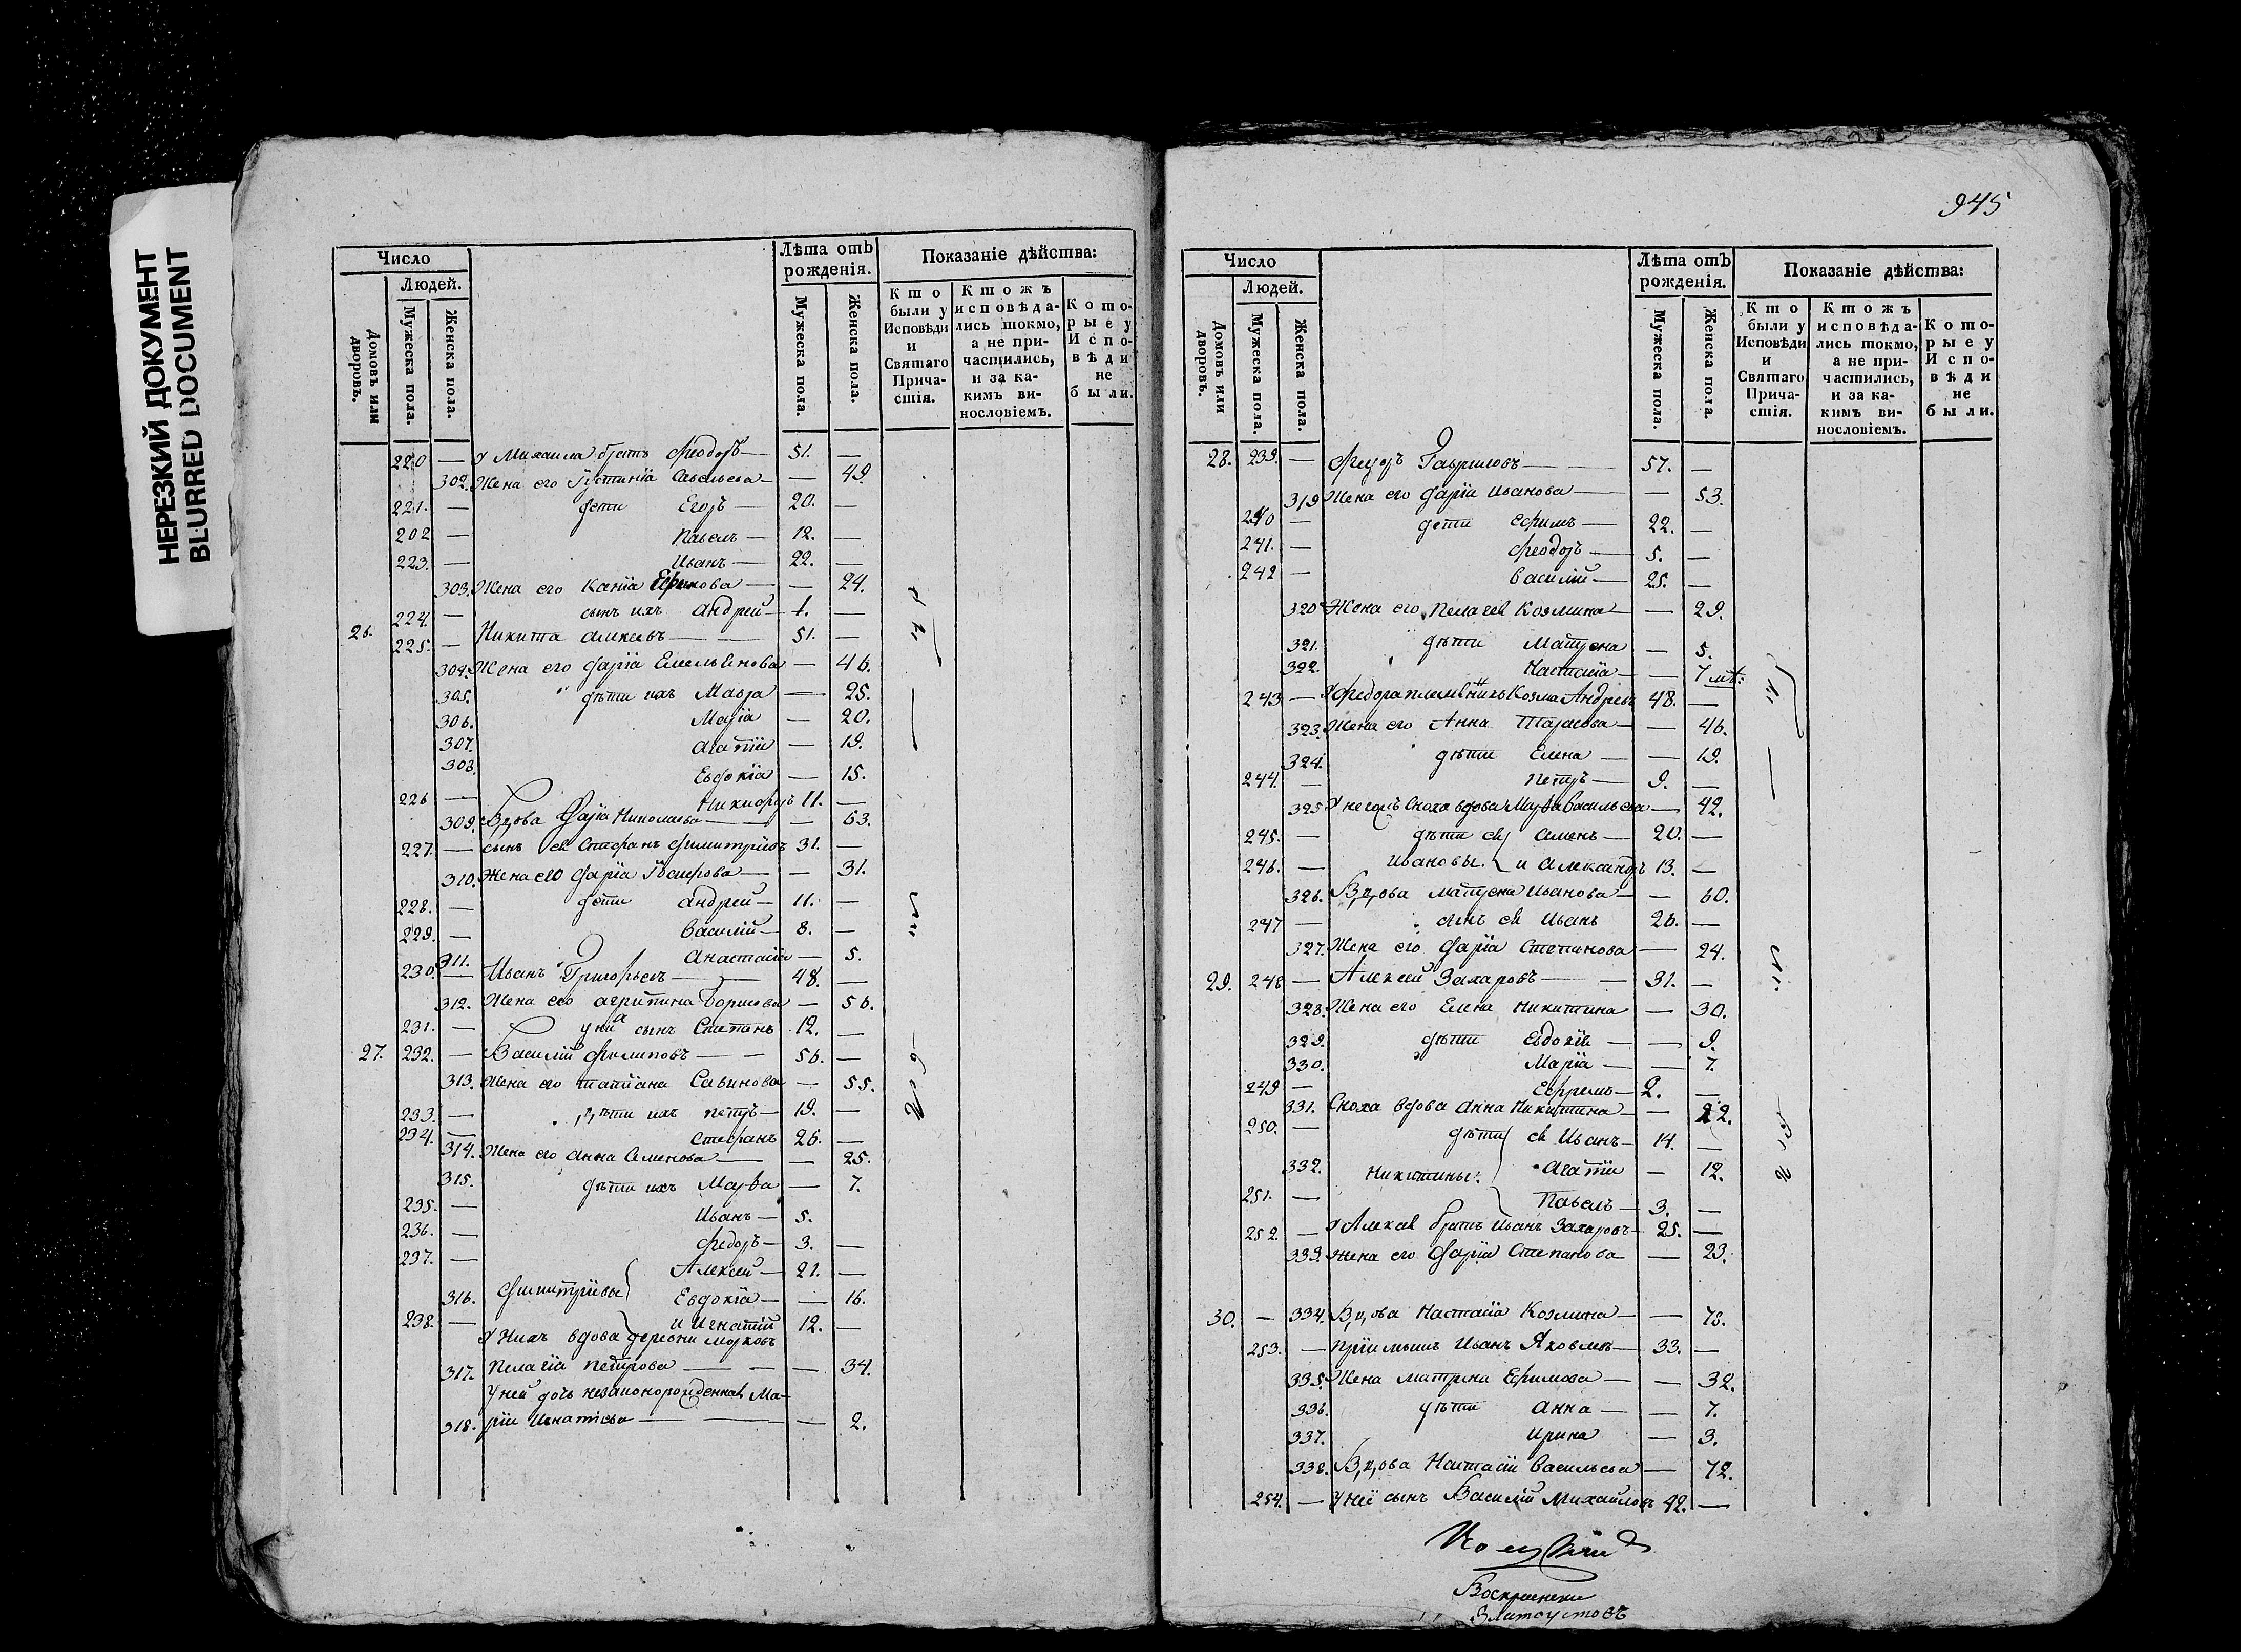 НЕРЕЗКИЙ ДОКУМЕНТ
BLURRED DOCUMENT
Число
Людей.
Домовъ или дворовъ.
Мужеска пола.
Женска пола.
Лѣта отъ рожденія.
Мужеска пола.
Женска пола.
Показаніе дѣйства:
Кто были у Исповѣди и Святаго Причастія.
Ктожъ исповѣдались токмо, а не причастились, и за какимъ винословіемъ.
Которые у Исповѣди не были.
220 — У Михаила братъ Феодоръ — 51. —
302. Жена его Іустинія Савельева — — 49.
221. — дети Егоръ — 20. —
202 — Павелъ — 12. —
223. — Иванъ — 22. —
303. Жена его — — 24.
224. — сынъ ихъ Андрей — 1. —
26. 225. — Никита — 51. —
304. Жена его Дарія Емельянова — 46.
305. дѣти ихъ Мавра — 25.
306. Марія — 20.
307. Агатія — 19.
308. Евдокія — 15.
226 — Никифоръ 11. —
309. Вдова Дарія Николаева — — 63.
227. — сынъ ея Стефанъ Димитріевъ 31. —
310. Жена его Дарія — — 31.
228. — дети Андрей — 11. —
229. — Василій — 8. —
311. Анастасія — 5.
230. — Иванъ Григорьевъ — 48. —
312. Жена его Агрипина Борисова — 56.
231. — у ниа сынъ Степанъ 12. —
27. 232. — Василій Филиповъ — — 56. —
313. Жена его Татіана Савинова — 55.
233. — дѣти ихъ Петръ — 19. —
234. — Стефанъ 26. —
314. Жена его Анна Семенова — — 25.
315. дѣти ихъ Марфа — 7.
235. — Иванъ — 5.
236. — Федоръ — 3. —
237. — Алексей — 21. —
316. Димитріевы Евдокія — — 16.
238. — и Игнатій 12. —
У нихъ вдова деревни Морковъ
317. Пелагія Петрова — — — 34.
У ней дочь незаконорожденная Ма-
318. рія Игнатіева — — — 2.
945
Число
Людей.
Домовъ или дворовъ.
Мужеска пола.
Женска пола.
Лѣта отъ рожденія.
Мужеска пола.
Женска пола.
Показаніе дѣйства:
Кто были у Исповѣди и Святаго Причастія.
Ктожъ исповѣдались токмо, а не причастились, и за какимъ винословіемъ.
Которые у Исповѣди не были.
28. 239. — Федоръ Гавриловъ — — 57. —
319 Жена его Дарія Иванова — — 53.
240 — дети Ефимъ — 22. —
241. — Феодоръ — 5. —
242 — Василій — 25. —
320 Жена его Пелагея Козмина — — 29.
321. дѣти Матрена — 5.
322. Настасія — 7 мѣ:
243 — У Федора племянникъ Козма Андреевъ 48. —
323. Жена его Анна Тарасова — — 46.
324. дѣти Елена — — 19.
244. — Петръ — 9. —
325 У него сноха вдова Марфа Васильева — 42.
245. — дѣти ея Семенъ — 20. —
246. — Ивановы. и Александръ 13. —
326. Вдова Матрена Иванова — — 60.
247 — сынъ ея Иванъ 26. —
327. Жена его Дарія Степанова — 24.
29. 248 — Алексей Захаровъ — — 31. —
328. Жена его Елена Никитина — 30.
329. дѣти Евдокія — — 9.
330. Марія — — 7.
249 — Ефремъ — 2. —
331. Сноха вдова Анна Никитина — — 22.
250. — дѣти ея Иванъ — 14. —
332. Никитины. Агатія — 12.
251. — Павелъ — 3. —
252. — У Алексея братъ Иванъ Захаровъ — 25. —
333. Жена его Дарія Степанова — 23.
30. — 334. Вдова Настасія Козмина — — 78.
253. — Пріимышъ Иванъ Яковлевъ — 33. —
335. Жена Матрена Ефимова — — 32.
336. дѣти Анна — — 7.
337. Ирина — 3.
338. Вдова Настасія Васильева — 72.
254. — У неё сынъ Василій Михайловъ 42. —
Воскресенски
Златоустовъ